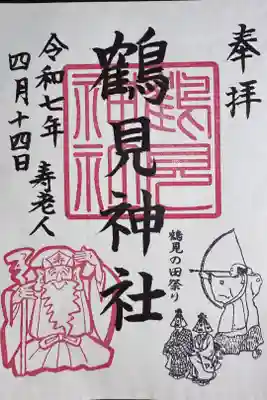 奉拝
鶴見神社
鶴見神社
鶴見の田祭り
令和七年
四月十四日
寿老人